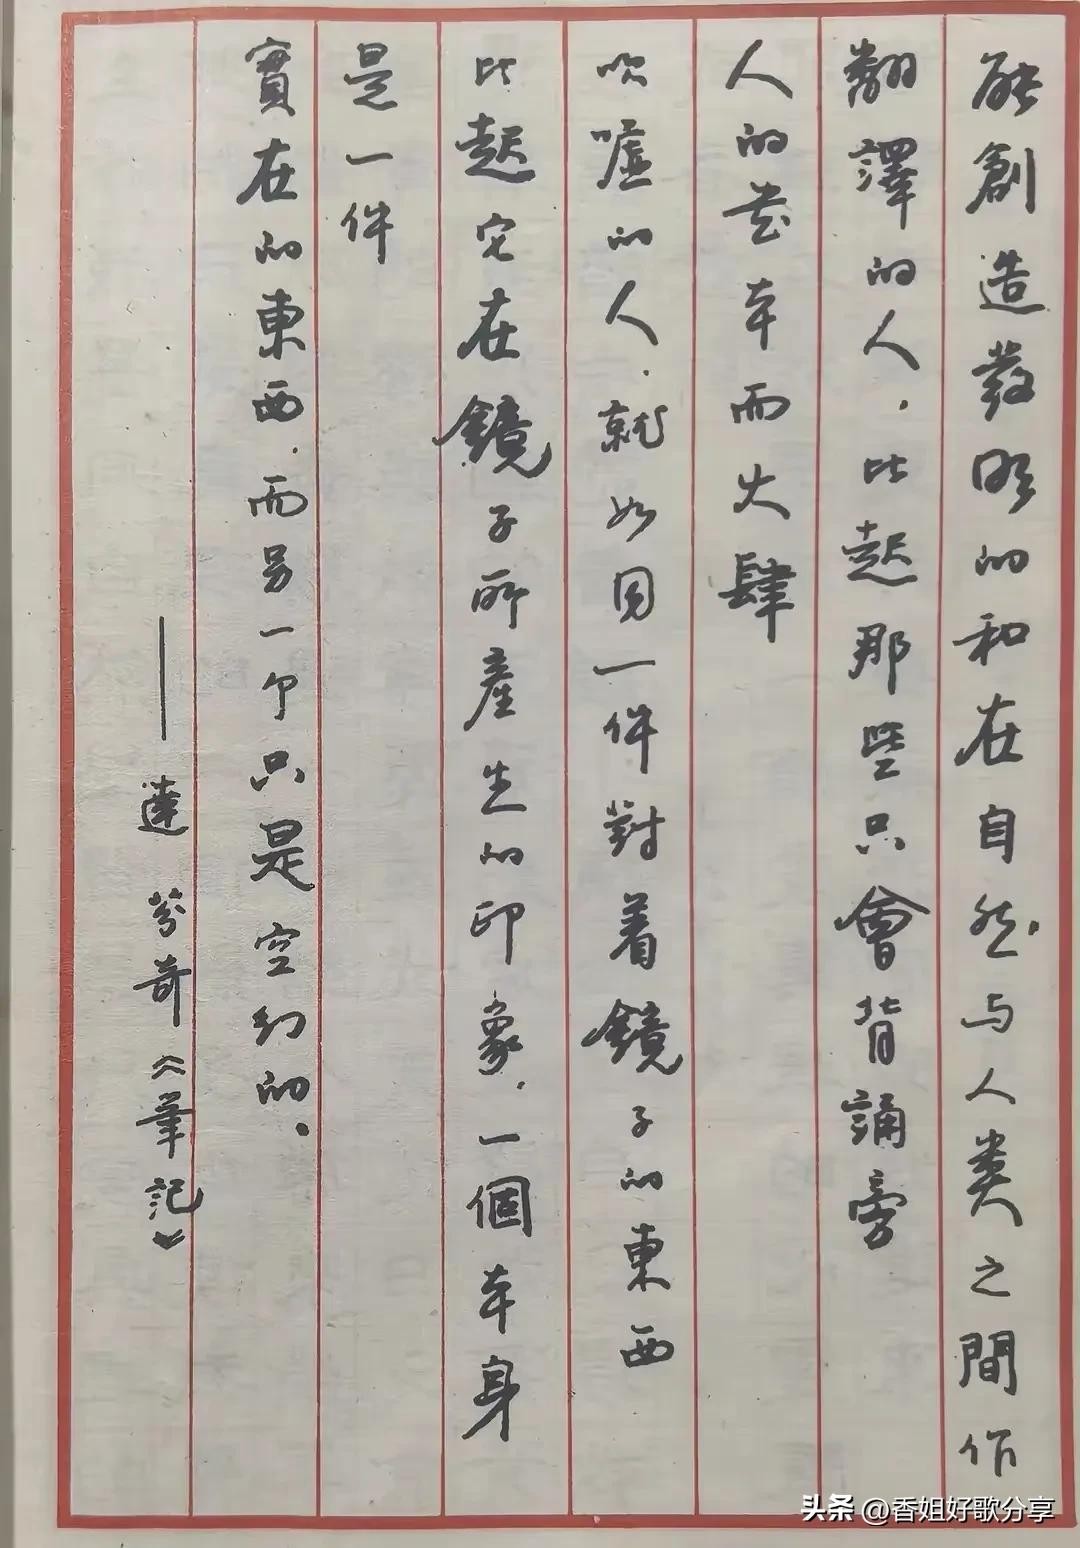 能創造發明的和在自然与人类之間作
翻譯的人，比起那些只會背誦旁
人的书本而大肆
吹嘘的人，就如同一件對着鏡子的東西
比起它在鏡子所產生的印象，一個本身
是一件
實在的東西，而另一个只是空幻的。
——達芬奇《筆記》
头条 @香姐好歌分享